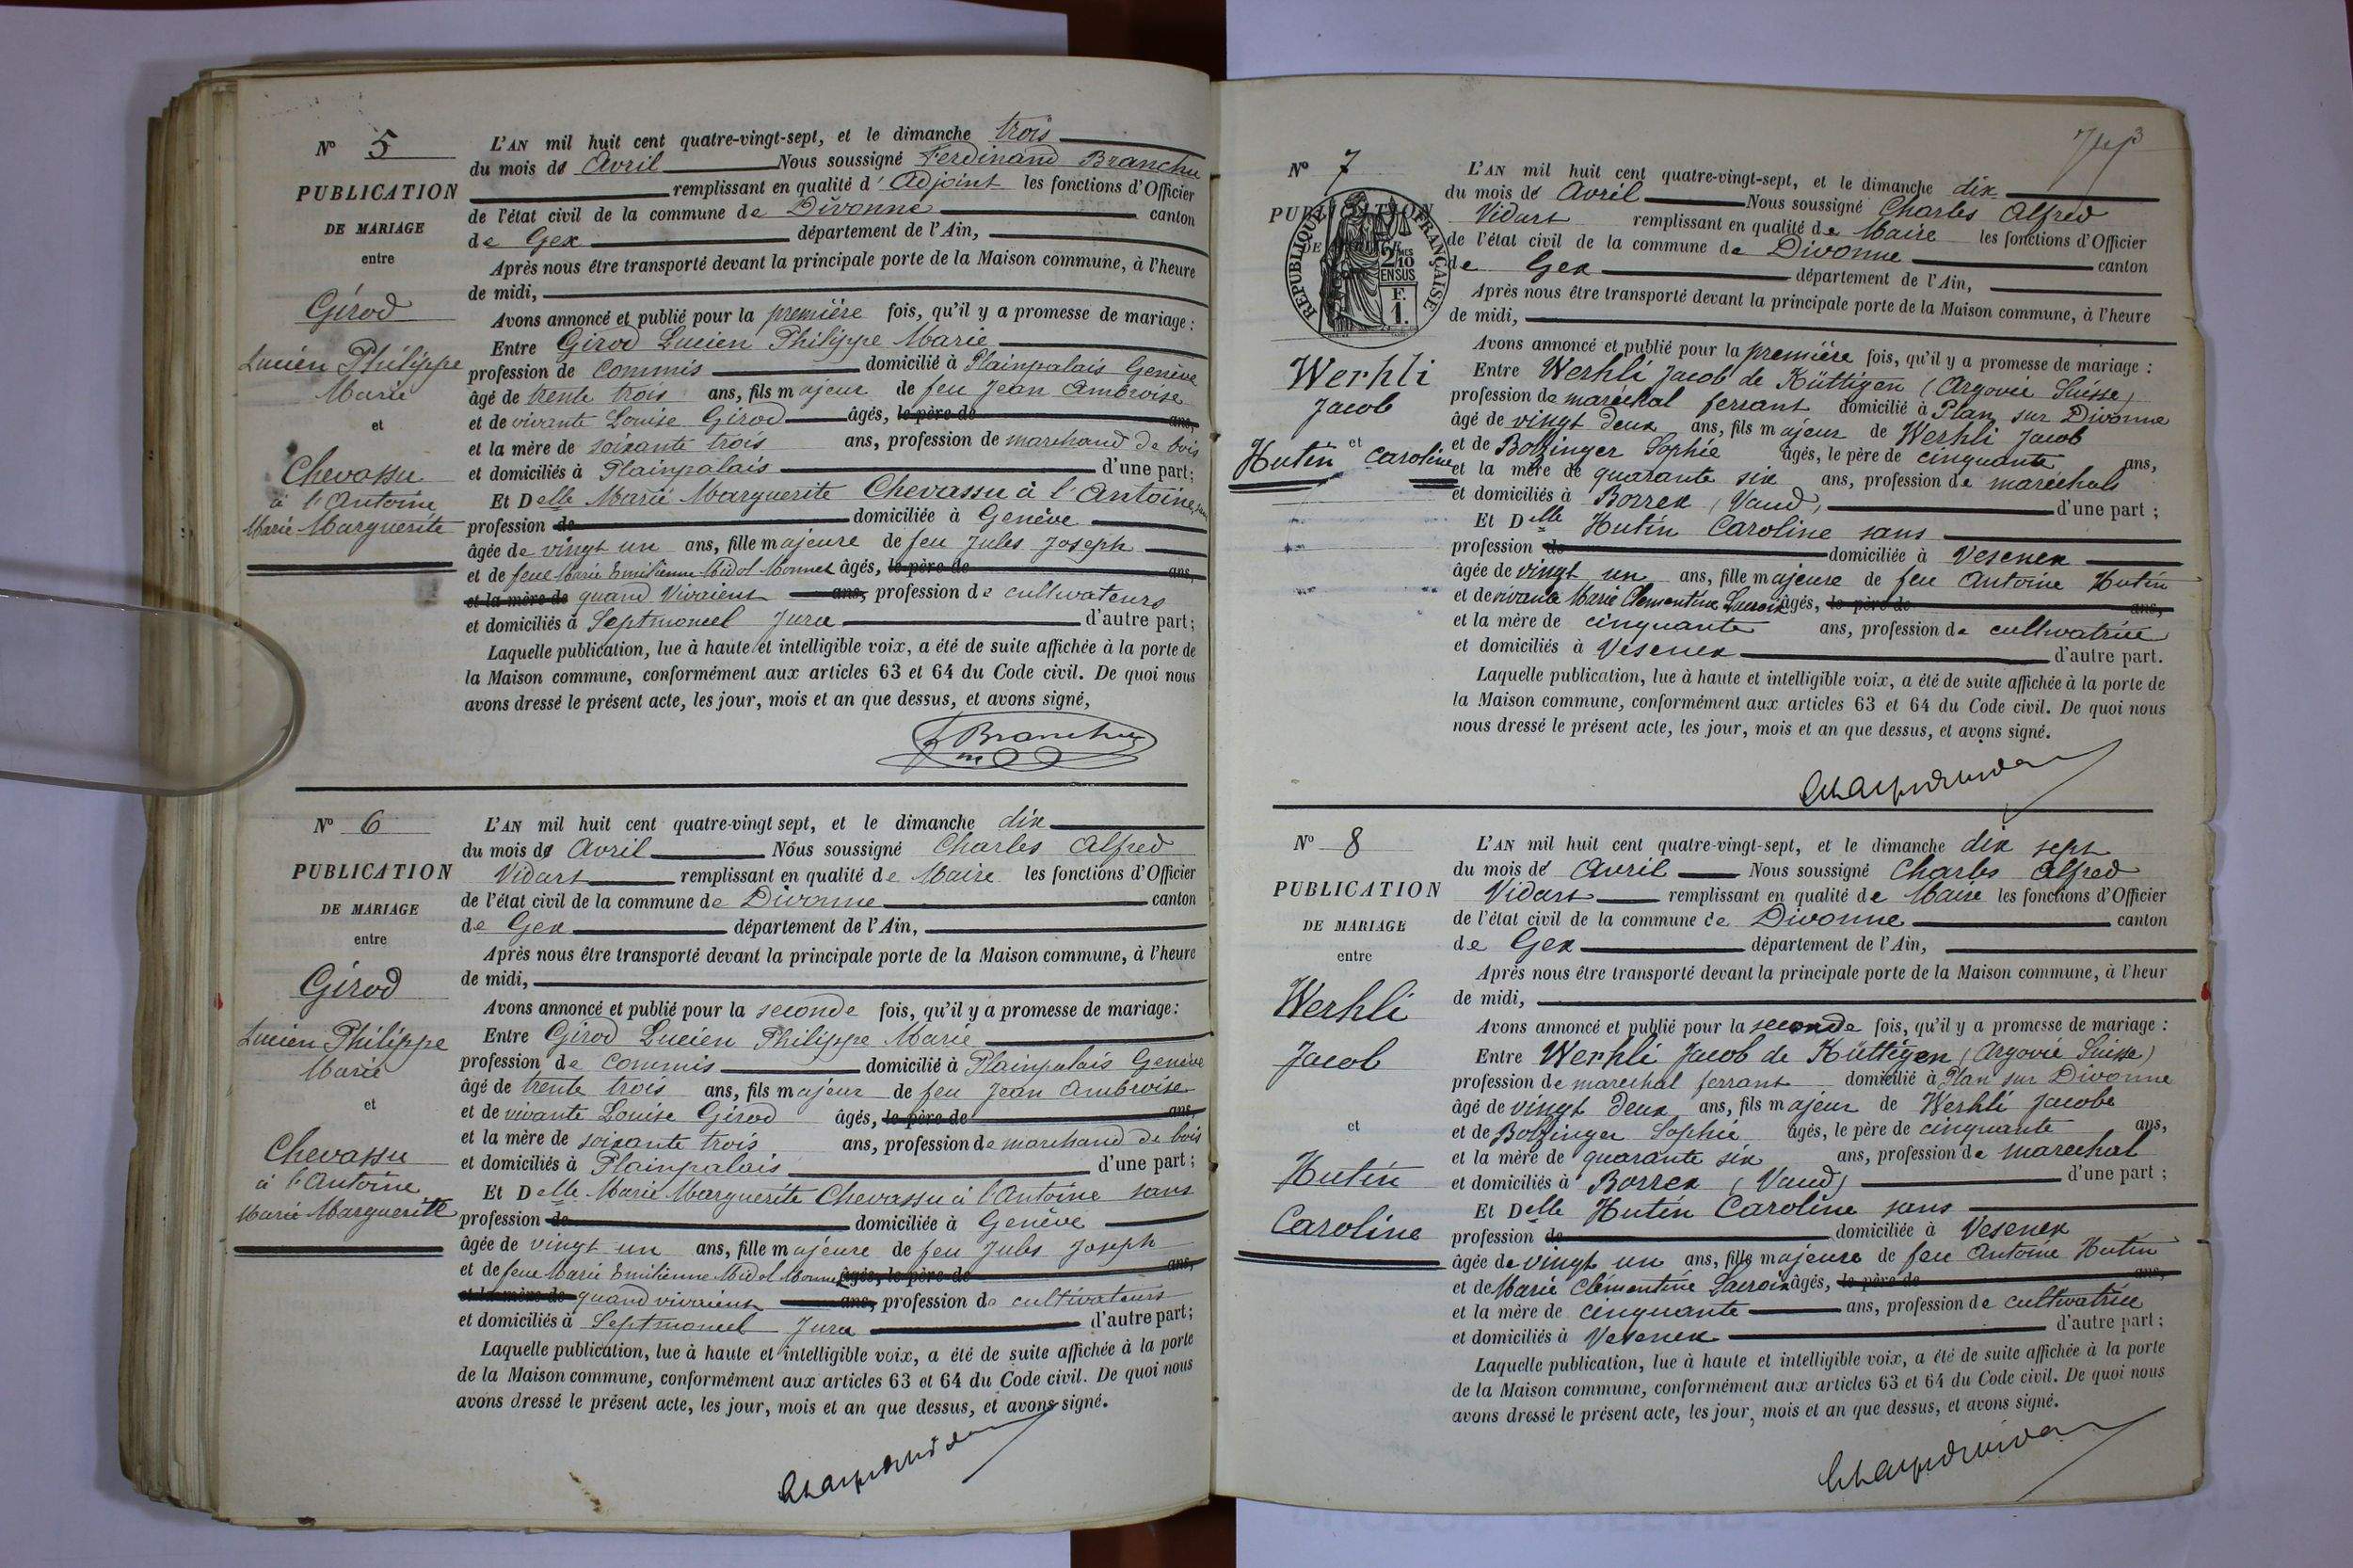 N° 5
PUBLICATION
DE MARIAGE
entre
Girod
Lucien Philippe
Marie
et
Chevassu
à l'Antoine
Marie Marguerite
L'AN mil huit cent quatre-vingt-sept, et le dimanche trois
du mois de Avril Nous soussigné Ferdinand Branchu
remplissant en qualité d'Adjoint les fonctions d'Officier
de l'état civil de la commune de Divonne canton
de Gex département de l'Ain,
Après nous être transporté devant la principale porte de la Maison commune, à l'heure
de midi,
Avons annoncé et publié pour la première fois, qu'il y a promesse de mariage :
Entre Girod Lucien Philippe Marie
profession de commis domicilié à Plainpalais Genève
âgé de trente trois ans, fils majeur de feu Jean Ambroise
et de vivante Louise Girod âgés, le père de ans,
et la mère de soixante trois ans, profession de marchand de bois
et domiciliés à Plainpalais d'une part;
Et Delle Marie Marguerite Chevassu à l'Antoine,
profession de domiciliée à Genève
âgée de vingt un ans, fille majeure de feu Jules Joseph
et de feue Marie Emilienne Midol Monnet âgés, le père de ans,
et la mère de quand vivaient ans, profession de cultivateurs
et domiciliés à Septmoncel Jura d'autre part;
Laquelle publication, lue à haute et intelligible voix, a été de suite affichée à la porte de
la Maison commune, conformément aux articles 63 et 64 du Code civil. De quoi nous
avons dressé le présent acte, les jour, mois et an que dessus, et avons signé,
Branchu
N° 6
PUBLICATION
DE MARIAGE
entre
Girod
Lucien Philippe
Marie
et
Chevassu
à l'Antoine
Marie Marguerite
L'AN mil huit cent quatre-vingt sept, et le dimanche dix
du mois de Avril Nous soussigné Charles Alfred
Vidart remplissant en qualité de Maire les fonctions d'Officier
de l'état civil de la commune de Divonne canton
de Gex département de l'Ain,
Après nous être transporté devant la principale porte de la Maison commune, à l'heure
de midi,
Avons annoncé et publié pour la seconde fois, qu'il y a promesse de mariage:
Entre Girod Lucien Philippe Marie
profession de commis domicilié à Plainpalais Genève
âgé de trente trois ans, fils majeur de feu Jean Ambroise
et de vivante Louise Girod âgés, le père de ans,
et la mère de soixante trois ans, profession de marchand de bois
et domiciliés à Plainpalais d'une part;
Et Delle Marie Marguerite Chevassu à l'Antoine sans
profession de domiciliée à Genève
âgée de vingt un ans, fille majeure de feu Jules Joseph
et de feue Marie Emilienne Midol Monnet âgés, le père de ans,
et la mère de quand vivaient ans, profession de cultivateurs
et domiciliés à Septmoncel Jura d'autre part;
Laquelle publication, lue à haute et intelligible voix, a été de suite affichée à la porte
de la Maison commune, conformément aux articles 63 et 64 du Code civil. De quoi nous
avons dressé le présent acte, les jour, mois et an que dessus, et avons signé.
N° 7
PUBLICATION
RÉPUBLIQUE FRANÇAISE
2 MES
10
EN SUS
F.
1.
Werhli
Jacob
et
Hutin Caroline
L'AN mil huit cent quatre-vingt-sept, et le dimanche dix
du mois de Avril Nous soussigné Charles Alfred
Vidart remplissant en qualité de Maire les fonctions d'Officier
de l'état civil de la commune de Divonne canton
de Gex département de l'Ain,
Après nous être transporté devant la principale porte de la Maison commune, à l'heure
de midi,
Avons annoncé et publié pour la première fois, qu'il y a promesse de mariage :
Entre Werhli Jacob de Küttigen (Argovie Suisse)
profession de maréchal ferrant domicilié à Plan sur Divonne
âgé de vingt deux ans, fils majeur de Werhli Jacob
et de Bolzinger Sophie âgés, le père de cinquante ans,
et la mère de quarante six ans, profession de maréchals
et domiciliés à Borrex (Vaud) d'une part ;
Et Delle Hutin Caroline sans
profession de domiciliée à Vesenex
âgée de vingt un ans, fille majeure de feu Antoine Hutin
et de vivante Marie Clementine Lacroix âgés, le père de ans,
et la mère de cinquante ans, profession de cultivatrice
et domiciliés à Vesenex d'autre part.
Laquelle publication, lue à haute et intelligible voix, a été de suite affichée à la porte de
la Maison commune, conformément aux articles 63 et 64 du Code civil. De quoi nous
nous dressé le présent acte, les jour, mois et an que dessus, et avons signé.
N° 8
PUBLICATION
DE MARIAGE
entre
Werhli
Jacob
et
Hutin
Caroline
L'AN mil huit cent quatre-vingt-sept, et le dimanche dix sept
du mois de Avril Nous soussigné Charles Alfred
Vidart remplissant en qualité de Maire les fonctions d'Officier
de l'état civil de la commune de Divonne canton
de Gex département de l'Ain,
Après nous être transporté devant la principale porte de la Maison commune, à l'heur
de midi,
Avons annoncé et publié pour la seconde fois, qu'il y a promesse de mariage :
Entre Werhli Jacob de Küttigen (Argovie Suisse)
profession de marechal ferrant domicilié à Plan sur Divonne
âgé de vingt deux ans, fils majeur de Werhli Jacobe
et de Bolzinger Sophie âgés, le père de cinquante ans,
et la mère de quarante six ans, profession de marechal
et domiciliés à Borrex (Vaud) d'une part ;
Et Delle Hutin Caroline sans
profession de domiciliée à Vesenex
âgée de vingt un ans, fille majeure de feu Antoine Hutin
et de Marie Clémentine Lacroix âgés, le père de ans,
et la mère de cinquante ans, profession de cultivatrice
et domiciliés à Vesenex d'autre part;
Laquelle publication, lue à haute et intelligible voix, a été de suite affichée à la porte
de la Maison commune, conformément aux articles 63 et 64 du Code civil. De quoi nous
avons dressé le présent acte, les jour, mois et an que dessus, et avons signé.